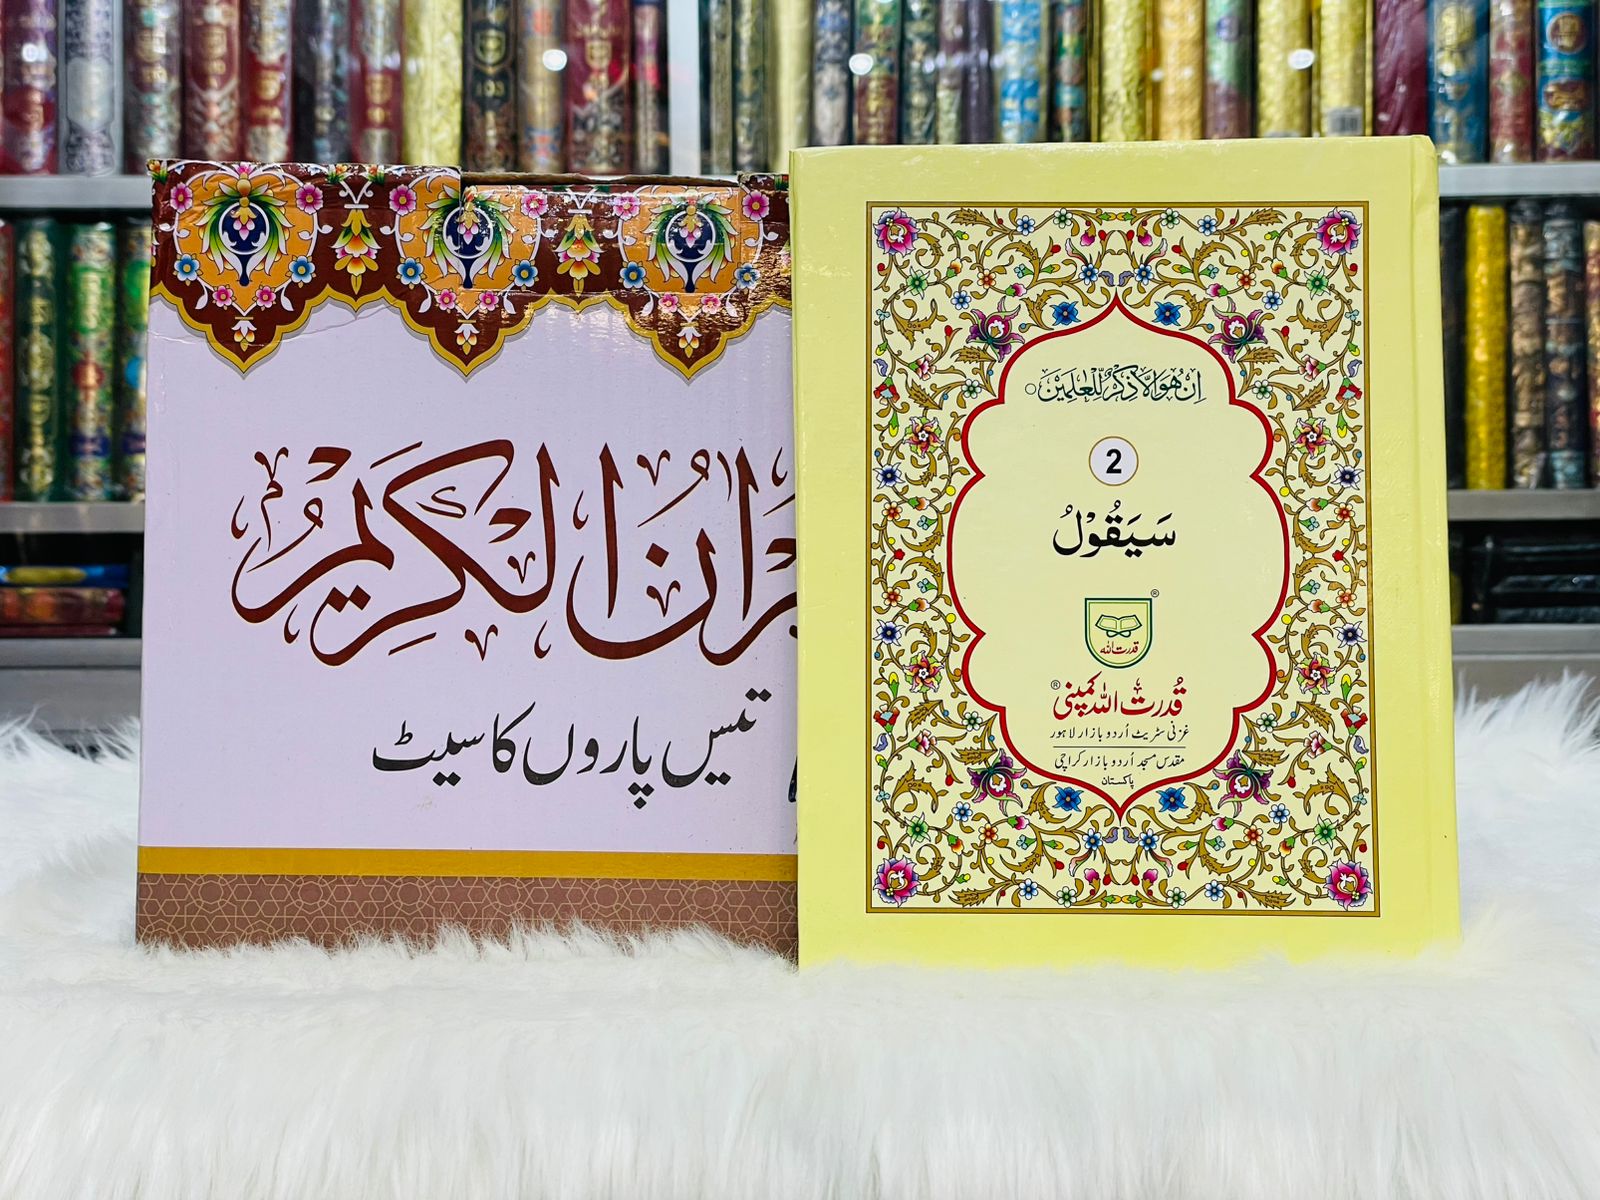 الکریم
تیس پاروں کا سیٹ
اِنْ هُوَ اِلَّا ذِكْرٌ لِّلْعٰلَمِیْنَ
2
سَیَقُوْلُ
قدرت اللہ
قُدرت اللہ کمپنی
غزنی سٹریٹ اُردو بازار لاہور
مقدس مسجد اُردو بازار کراچی
پاکستان